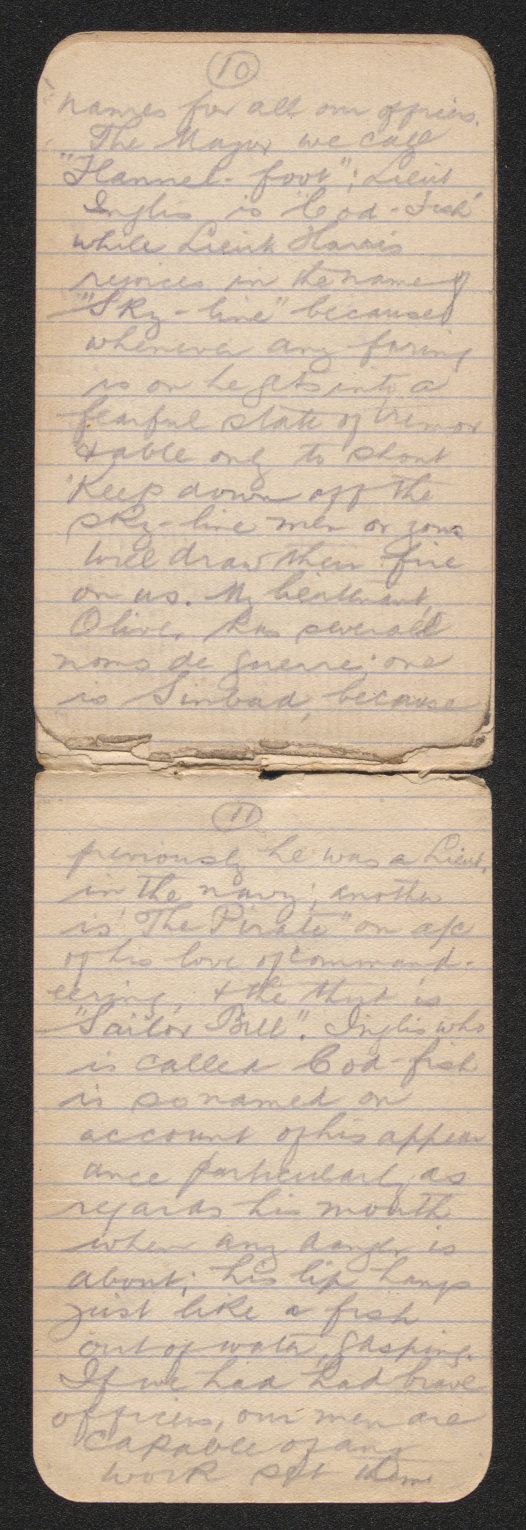 10
names for all our officers.
The Major we call
"Flannel-foot"; Lieut
Inglis is "Cod-Fish"
while Lieut Harris
rejoices in the name of
"Sky-line" because
whenever any firing
is on he gets into a
fearful state of tremor
& able only to shout
'Keep down off the
sky-line men or you
will draw their fire
on us. My lieutenant,
Oliver, has several
noms de guerre; one
is Sinbad, because
11
previously he was a Lieut.
in the navy; another
is "The Pirate" on a/c
of his love of "command-
eering", & the third is
"Sailor Bill". Inglis who
is called Cod-fish
is so named on
account of his appear
ance particularly as
regards his mouth
when any danger is
about; his lip hangs
just like a fish
out of water, gasping.
If we had had brave
officers, our men are
capable of any
work set them